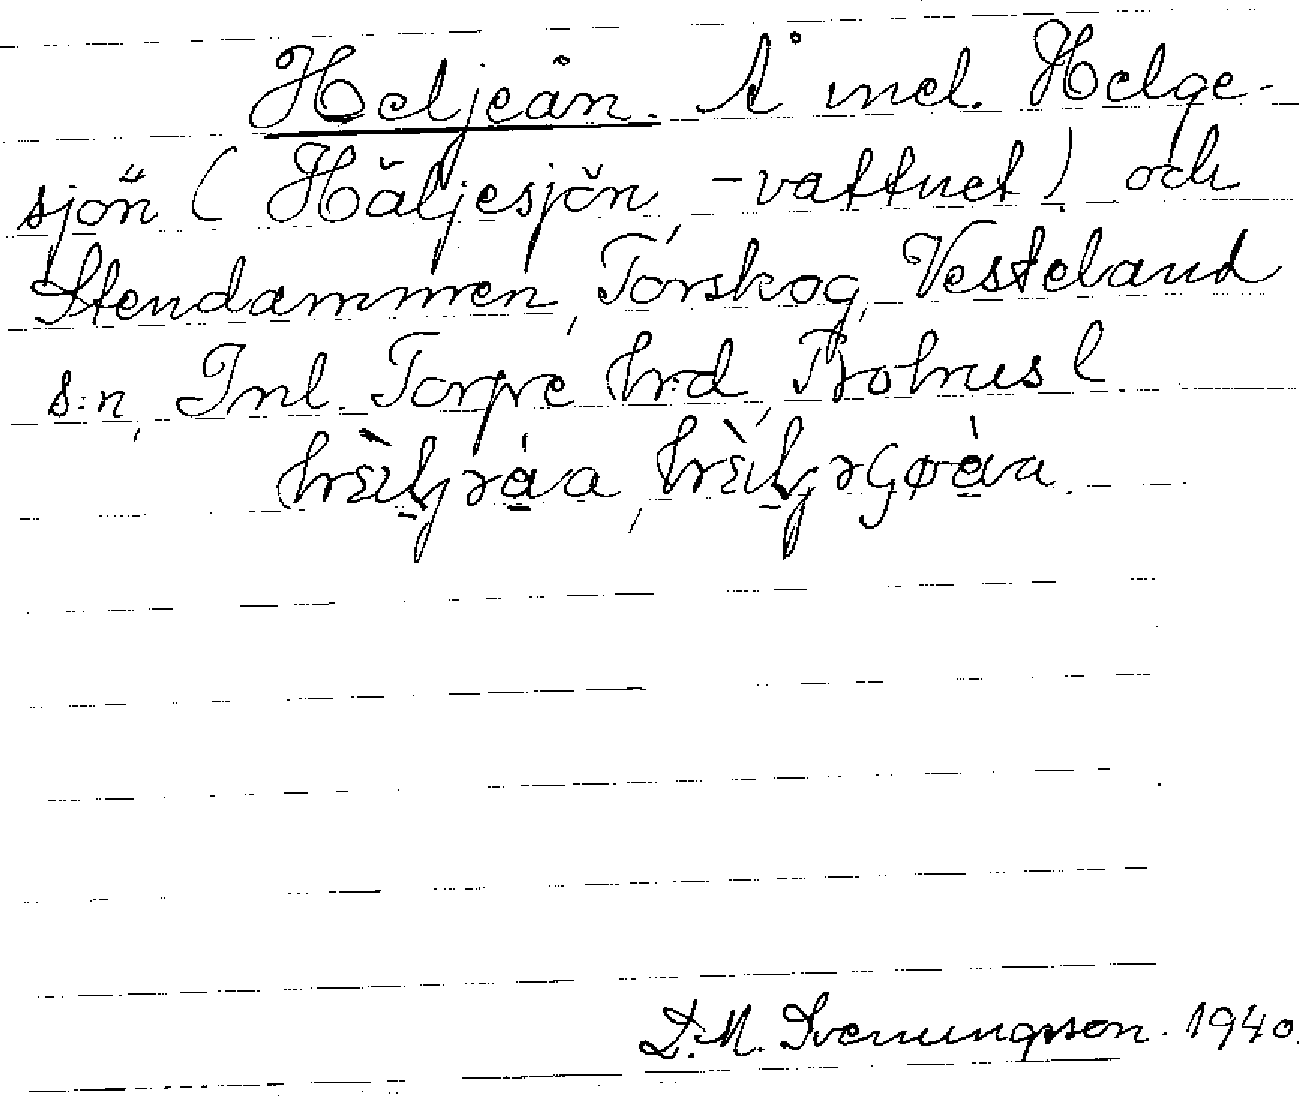 Heljeån. Å mel. Helge-
sjön (Häljesjön, -vattnet) och
Stendammen, Torskog, Vesteland
s:n, Inl. Torpe hrd, Bohusl.
D. M. Svenungsson. 1940.